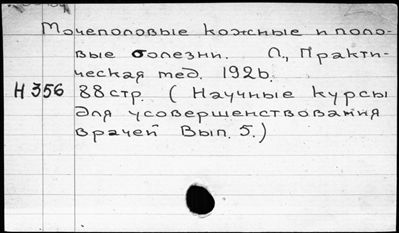 Мочеполовые кожные и поло-
вые болезни. Л., Практи-
ческая мед. 1926.
Н 356 88 стр. (Научные курсы
для усовершенствования
врачей Вып. 5.)